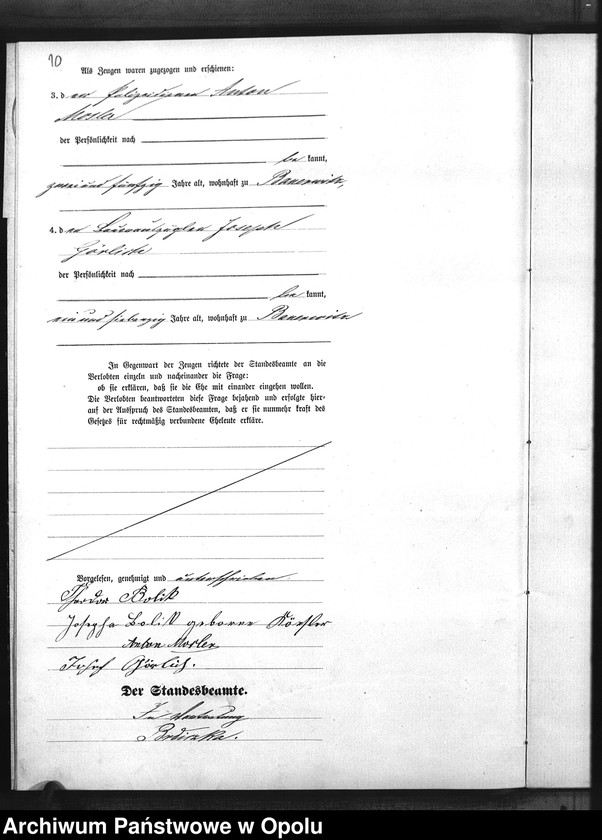 10
Als Zeugen waren zugezogen und erschienen:
3. den Polizeidiener Anton
Mosler
der Persönlichkeit nach
be kannt,
zweiundfünfzig Jahre alt, wohnhaft zu Bauerwitz,
4. den Bauerauszügler Joseph
Görlich
der Persönlichkeit nach
be kannt,
einundsiebenzig Jahre alt, wohnhaft zu Bauerwitz
In Gegenwart der Zeugen richtete der Standesbeamte an die
Verlobten einzeln und nacheinander die Frage:
ob sie erklären, daß sie die Ehe mit einander eingehen wollen.
Die Verlobten beantworteten diese Frage bejahend und erfolgte hier-
auf der Ausspruch des Standesbeamten, daß er sie nunmehr kraft des
Gesetzes für rechtmäßig verbundene Eheleute erkläre.
Vorgelesen, genehmigt und unterschrieben
Theodor Bolik
Josepha Bolik geborne Körsler
Anton Mosler
Josef Görlich.
Der Standesbeamte.
In Vertretung
Archiwum Państwowe w Opolu